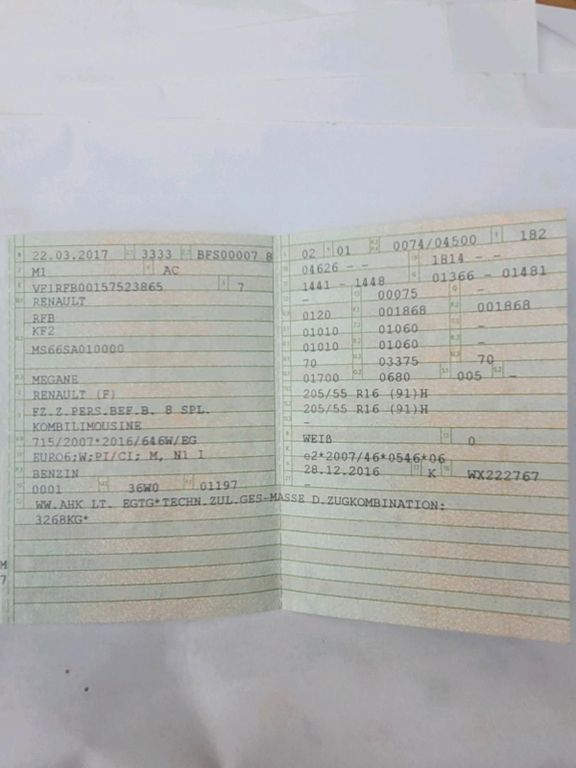 22.03.2017 3333 BFS00007 8
M1 AC
VF1RFB00157523865 7
RENAULT
RFB
KF2
MS66SA010000
MEGANE
RENAULT (F)
FZ.Z.PERS.BEF.B. 8 SPL.
KOMBILIMOUSINE
715/2007*2016/646W/EG
EURO6;W;PI/CI; M, N1 I
BENZIN
0001 36W0 01197
WW.AHK LT. EGTG*TECHN.ZUL.GES-MASSE D.ZUGKOMBINATION:
3268KG*
M
7
02 01 0074/04500 182
04626 - - 1814 - -
1441 - 1448 01366 - 01481
- 00075 -
0120 001868 001868
01010 01060 -
01010 01060 -
70 03375 70
01700 0680 005 -
205/55 R16 (91)H
205/55 R16 (91)H
-
WEIß 0
e2*2007/46*0546*06
28.12.2016 K WX222767
-